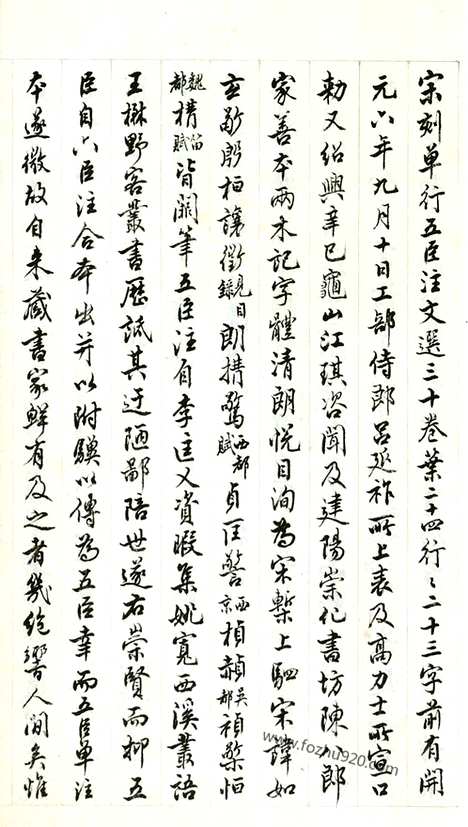 宋刻單行五臣注文選三十卷葉二十四行〻二十三字前有開
元六年九月十日工部侍郎呂延祚所上表及高力士所宣口
勅又紹興辛巳龜山江琪咨聞及建陽崇化書坊陳八郎
家善本兩木記字體清朗悅目洵為宋槧上駟宋諱如
玄敬殷桓讓徵見目錄朗搆驚西都賦貞匡警西京楨赬吳都禎檠恒
魏都構笛賦皆闕筆五臣注自李匡乂資暇集姚寬西溪叢語
王楙野客叢書歷詆其迂陋鄙陪世遂右崇賢而抑五
臣自六臣注合本出并以附驥以傳為五臣幸而五臣單注
本遂微故自来藏書家鮮有及之者幾絶響人間矣惟
www.fozhu920.com